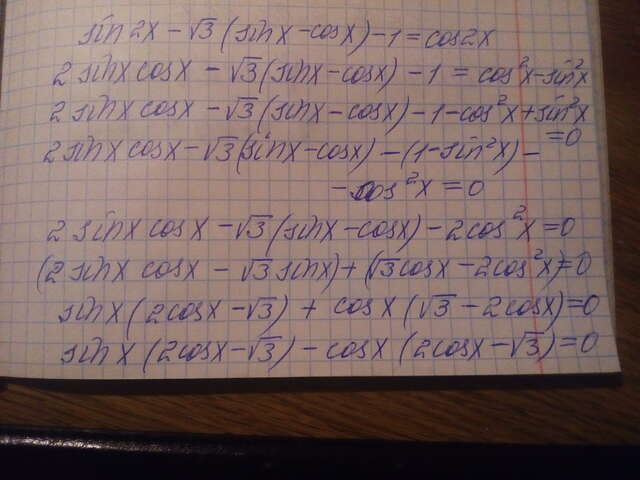 sin 2x - √3 (sin x - cos x) - 1 = cos 2x
2 sin x cos x - √3 (sin x - cos x) - 1 = cos²x - sin²x
2 sin x cos x - √3 (sin x - cos x) - 1 - cos²x + sin²x
= 0
2 sin x cos x - √3 (sin x - cos x) - (1 - sin²x) -
- cos²x = 0
2 sin x cos x - √3 (sin x - cos x) - 2cos²x = 0
(2 sin x cos x - √3 sin x) + (√3 cos x - 2cos²x) = 0
sin x (2cos x - √3) + cos x (√3 - 2cos x) = 0
sin x (2cos x - √3) - cos x (2cos x - √3) = 0